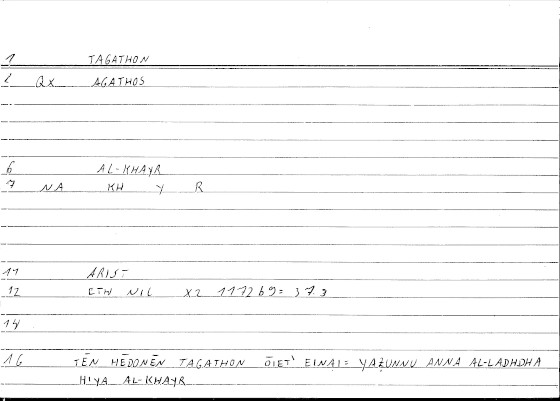 1 TAGATHON
2 Qx AGATHOS
6 AL-KHAYR
7 NA KH Y R
11 ARIST
12 ETH NIC X2 1172b9= 37.3
14
16 TĒN HĒDONĒN TAGATHON ŌIET' EINAI= YAẒUNNU ANNA AL-LADHDHA
HIYA AL-KHAYR